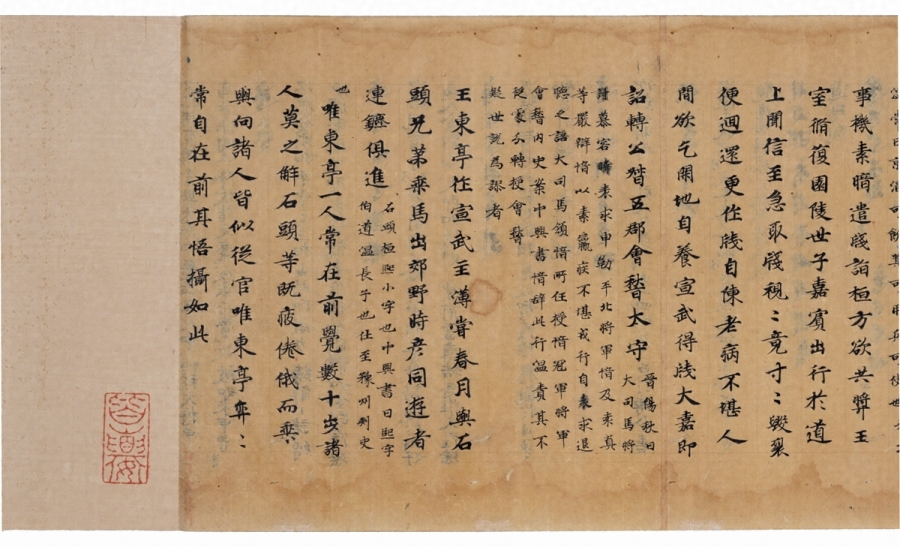 事機素暗遣牋詣桓方欲共獎王
室脩復園陵世子嘉賓出行於道
上聞信至急取牋視〻竟寸〻毀裂
便迴還更作牋自陳老病不堪人
間欲乞閑地自養宣武得牋大嘉即
詔轉公督五郡會稽太守
晉陽秋曰
大司馬將
討慕容暐表求申勸平北將軍愔及袁真
等嚴辯愔以素羸疾不堪戎行自表求退
聽之詔大司馬領愔所任授愔冠軍將軍
會稽內史案中興書愔辞此行溫責其不
從處分轉授會稽
疑世說為謬者
王東亭作宣武主薄嘗春月與石
頭兄弟乗馬出郊野時彦同遊者
連鑣俱進
石頭桓熙小字也中興書曰熙字
伯道溫長子也仕至豫州刺史
也
唯東亭一人常在前覺數十步諸
人莫之解石頭等既疲倦俄而乗
輿向諸人皆似從官唯東亭弈〻
常自在前其悟攝如此